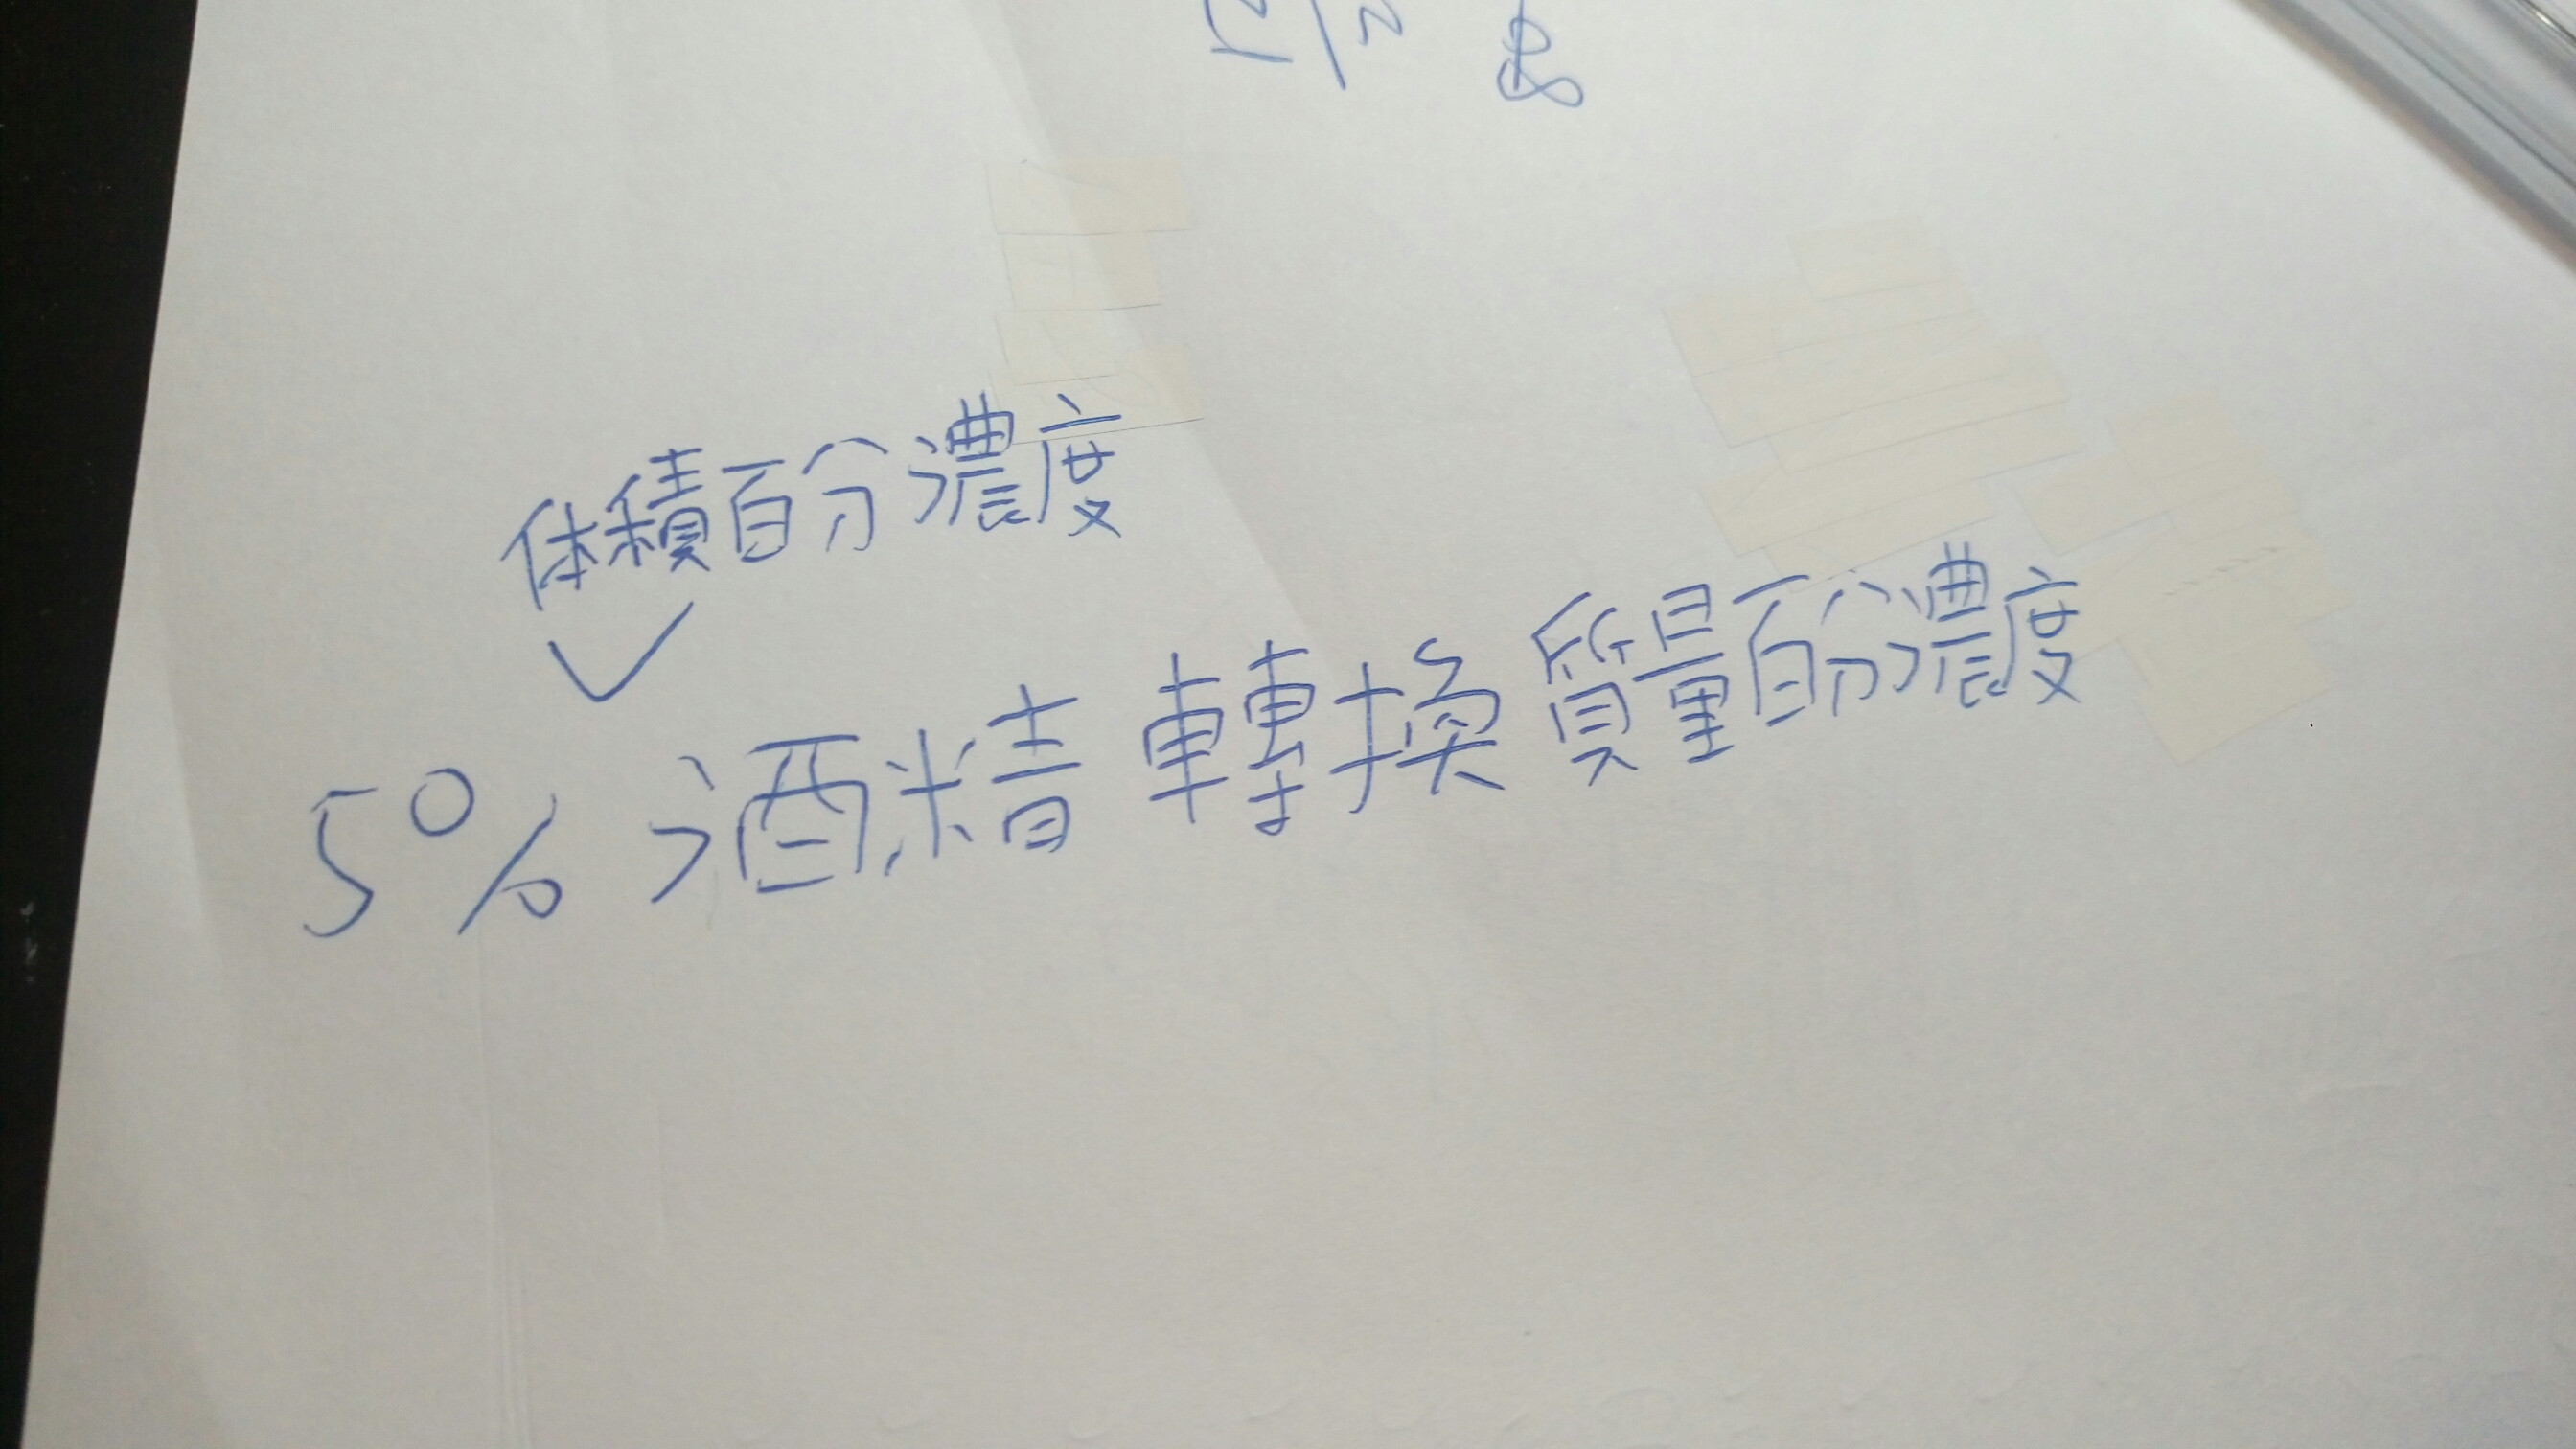 体積百分濃度
5% 酒精 轉換 質量百分濃度